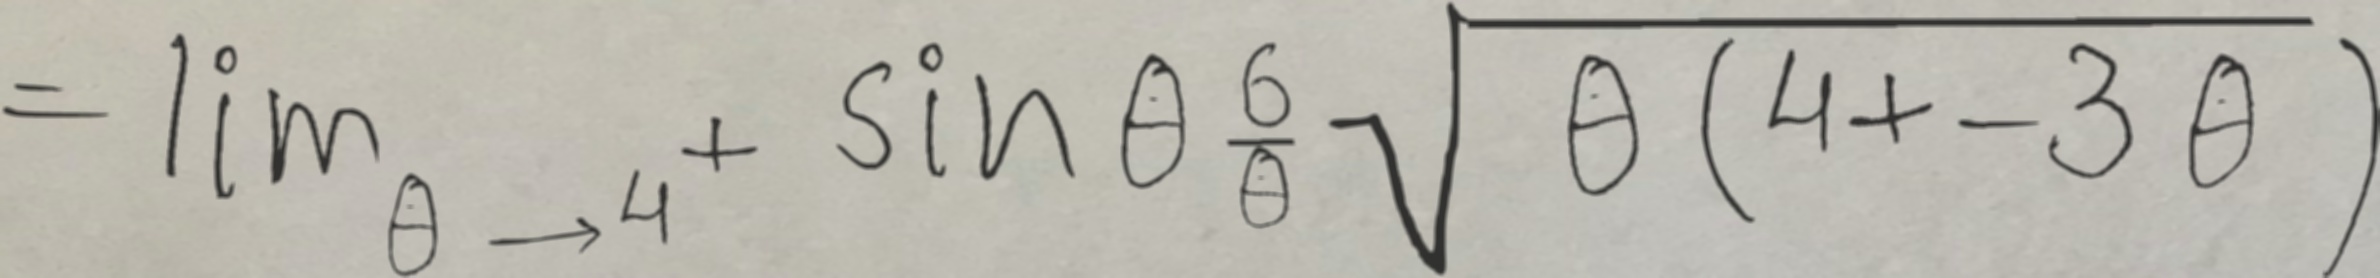 = lim_{θ→4^+} sin θ \frac{6}{θ} \sqrt{θ(4+-3θ)}